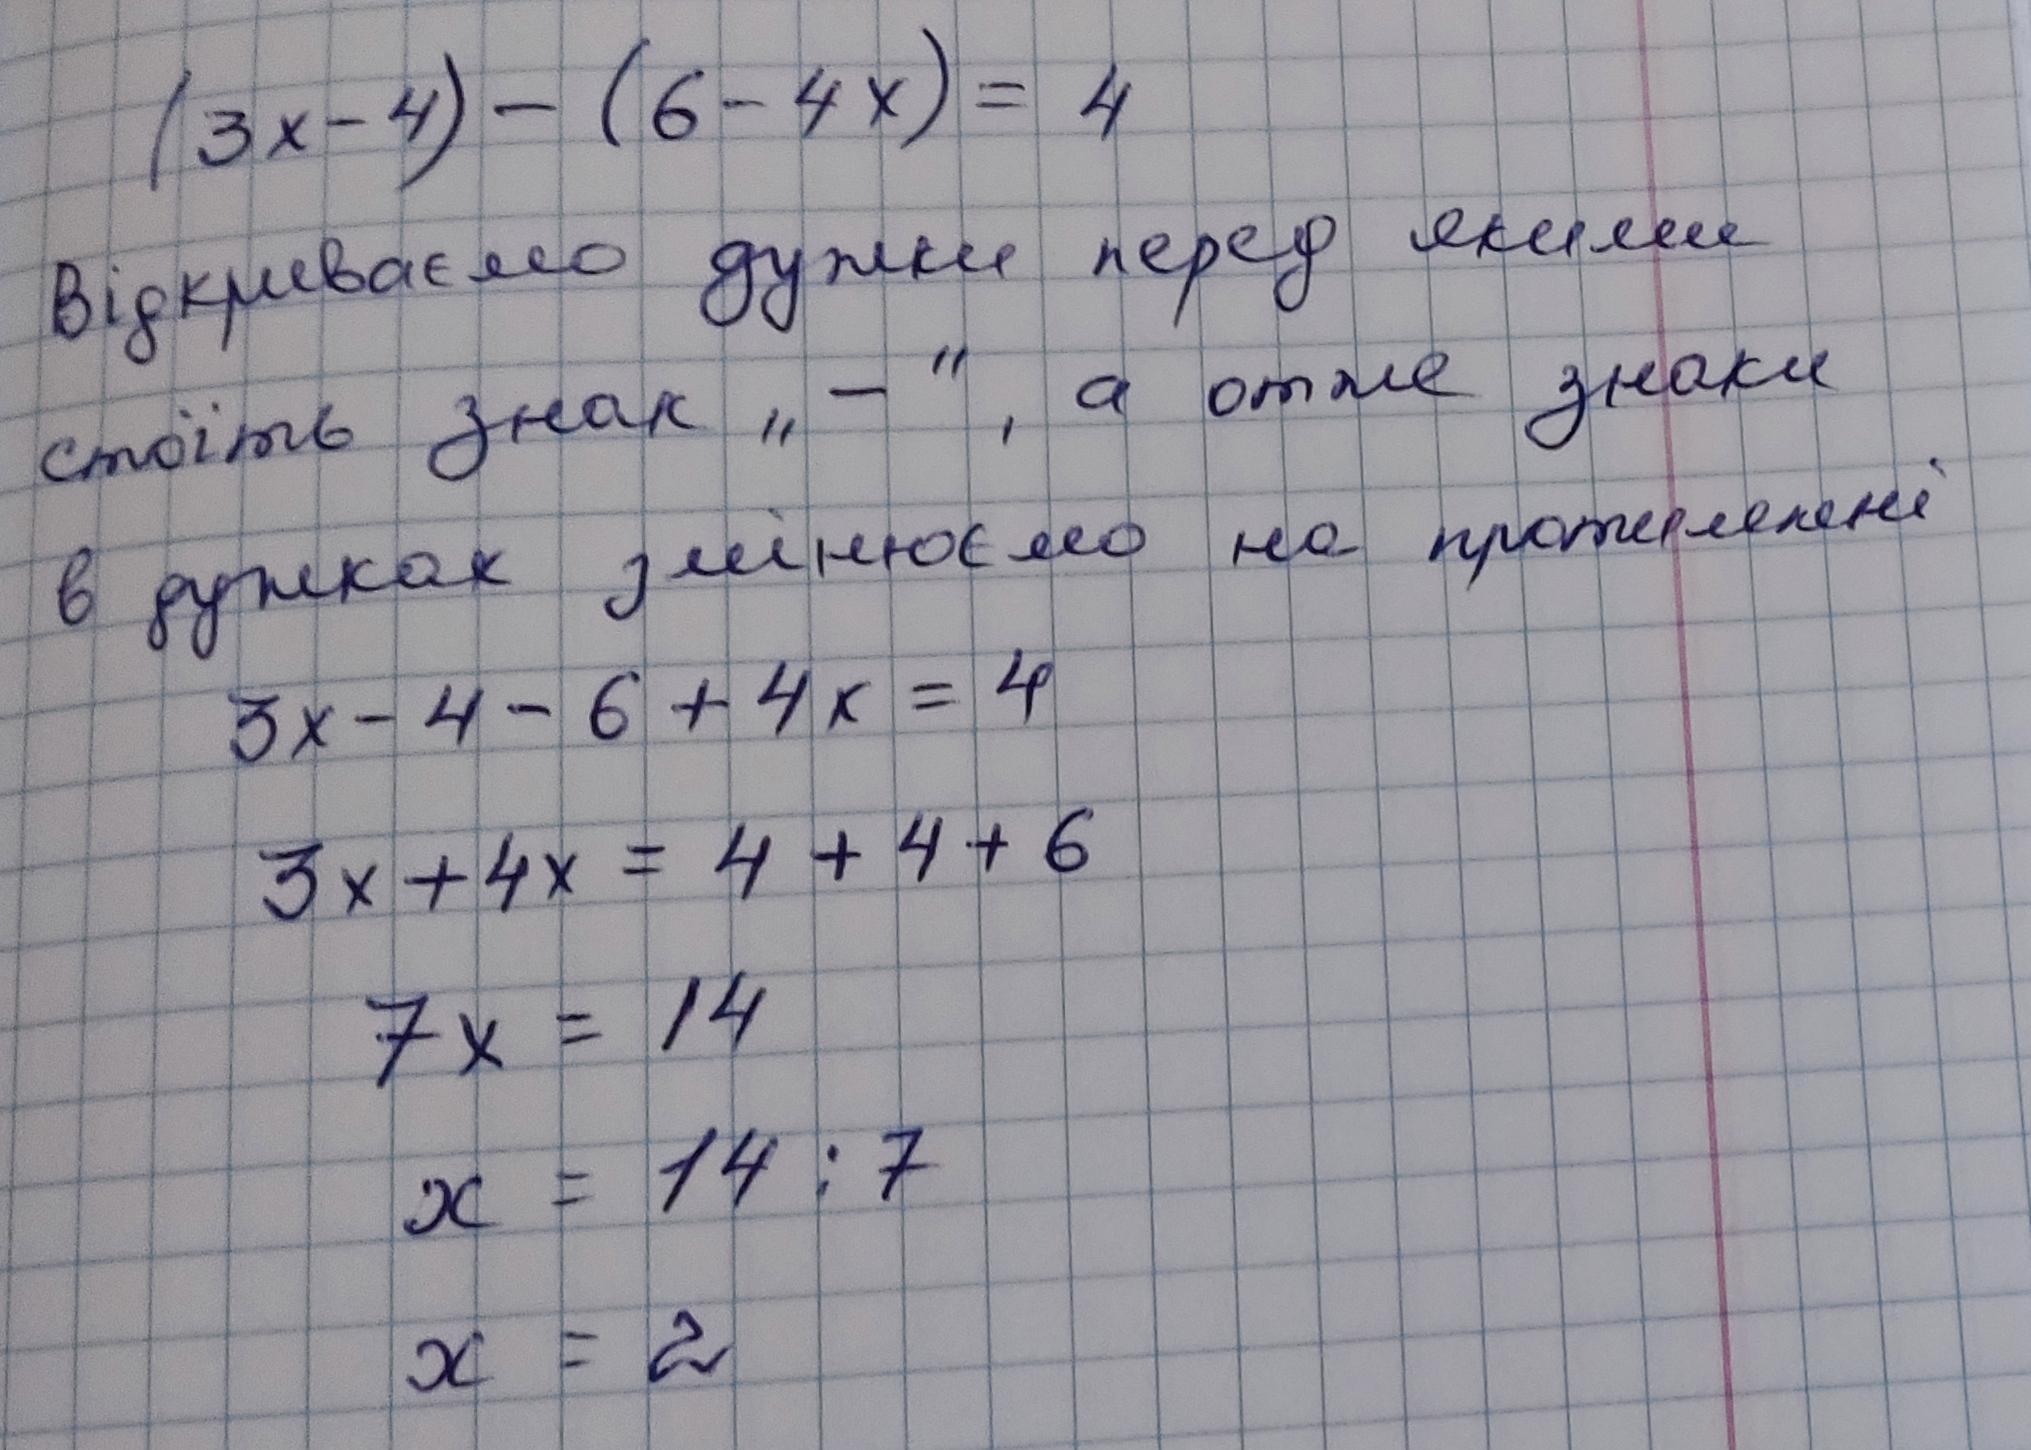 (3x-4)-(6-4x)=4
Відкриваємо дужки перед якими
стоїть знак „-“, а отже знаки
в дужках змінюємо на протилежні
3x-4-6+4x=4
3x+4x=4+4+6
7x=14
x=14:7
x=2